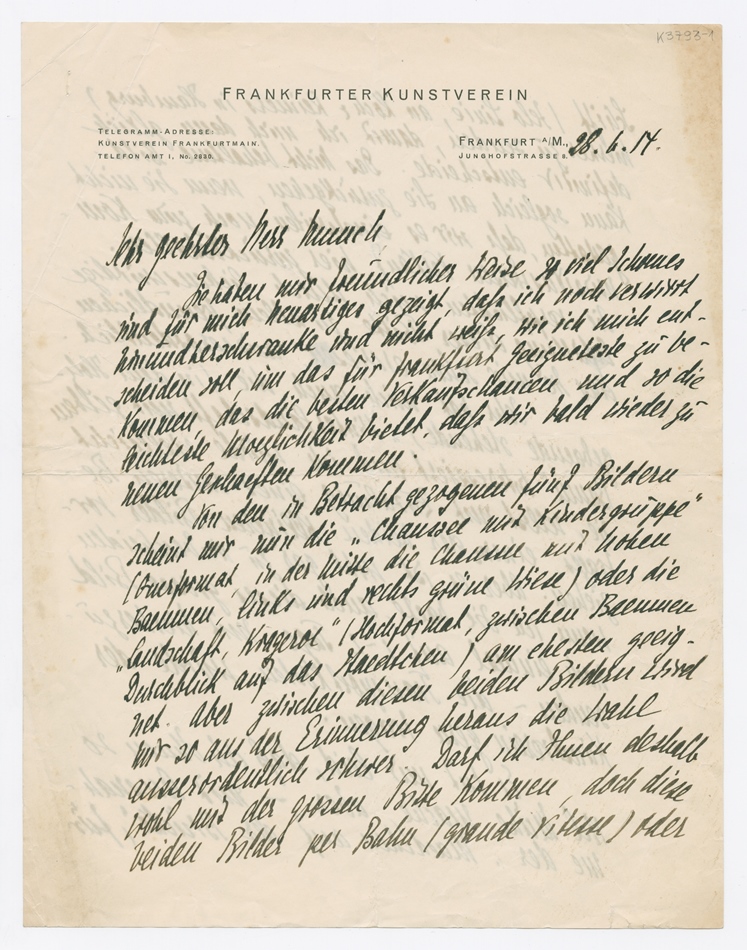 K3793-1
FRANKFURTER KUNSTVEREIN
TELEGRAMM-ADRESSE:
KUNSTVEREIN FRANKFURTMAIN.
TELEFON AMT I, No. 2830.
FRANKFURT A/M., 28. 6. 14.
JUNGHOFSTRASSE 8.
Sehr geehrter Herr Munch
Sie haben mir freundlicher Weise so viel Schoenes
und für mich neuartiges gezeigt, dass ich noch verwirrt
hinundherschwanke und nicht weiss, wie ich mich ent-
scheiden soll, um das für Frankfurt Geeigneteste zu be-
kommen, das die besten Verkaufschancen und so die
leichteste Moeglichkeit bietet, dass wir bald wieder zu
neuen Geschaeften kommen.
Von den in Betracht gezogenen fünf Bildern
scheint mir nun die „Chaussee mit Kindergruppe"
(Querformat, in der Mitte die Chaussee mit hohen
Baeumen, links und rechts grüne Wiese) oder die
„Landschaft, Krageroe" (Hochformat, zwischen Baeumen
Durchblick auf das Staedtchen) am ehesten geeig-
net. Aber zwischen diesen beiden Bildern wird
mir so aus der Erinnerung heraus die Wahl
ausserordentlich schwer. Darf ich Ihnen deshalb
wohl mit der grossen Bitte kommen, doch diese
beiden Bilder per Bahn (grande vitesse) oder